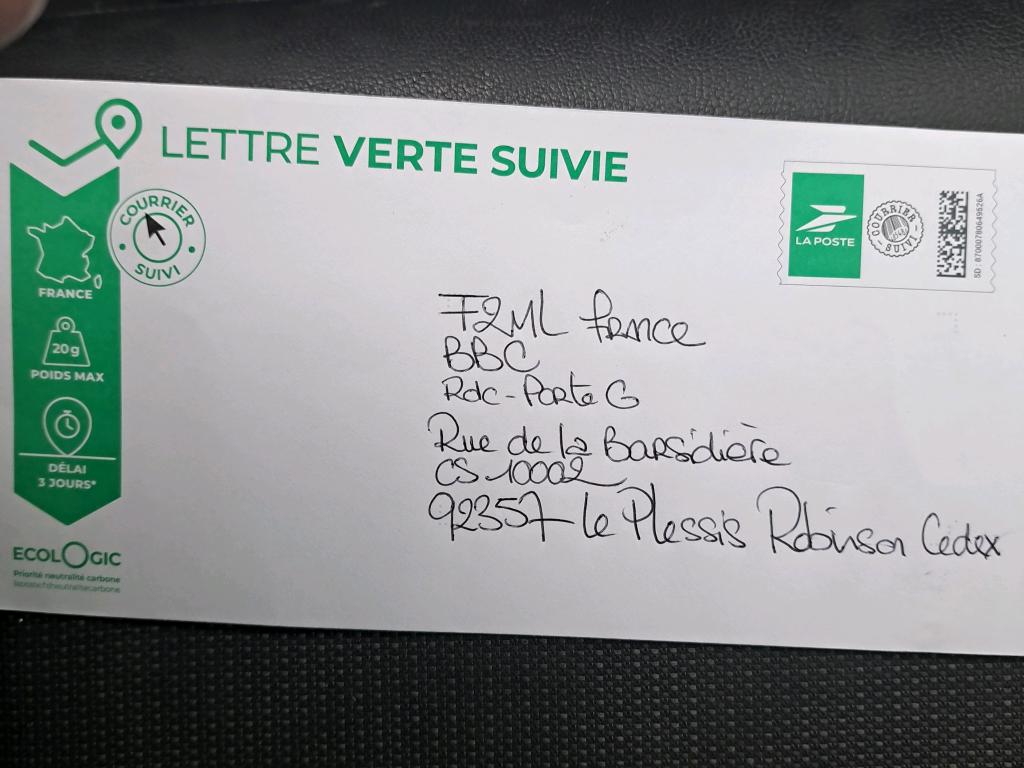 LETTRE VERTE SUIVIE
COURRIER
SUIVI
FRANCE
20g
POIDS MAX
DÉLAI
3 JOURS*
ECOLOGIC
Priorité neutralité carbone
laposte.fr/neutralitecarbone
LA POSTE
COURRIER
SUIVI
SD : 87000780649526A
F2ML France
BBC
RdC - Porte G
Rue de la Barsidière
CS 10002
92357 Le Plessis Robinson Cedex